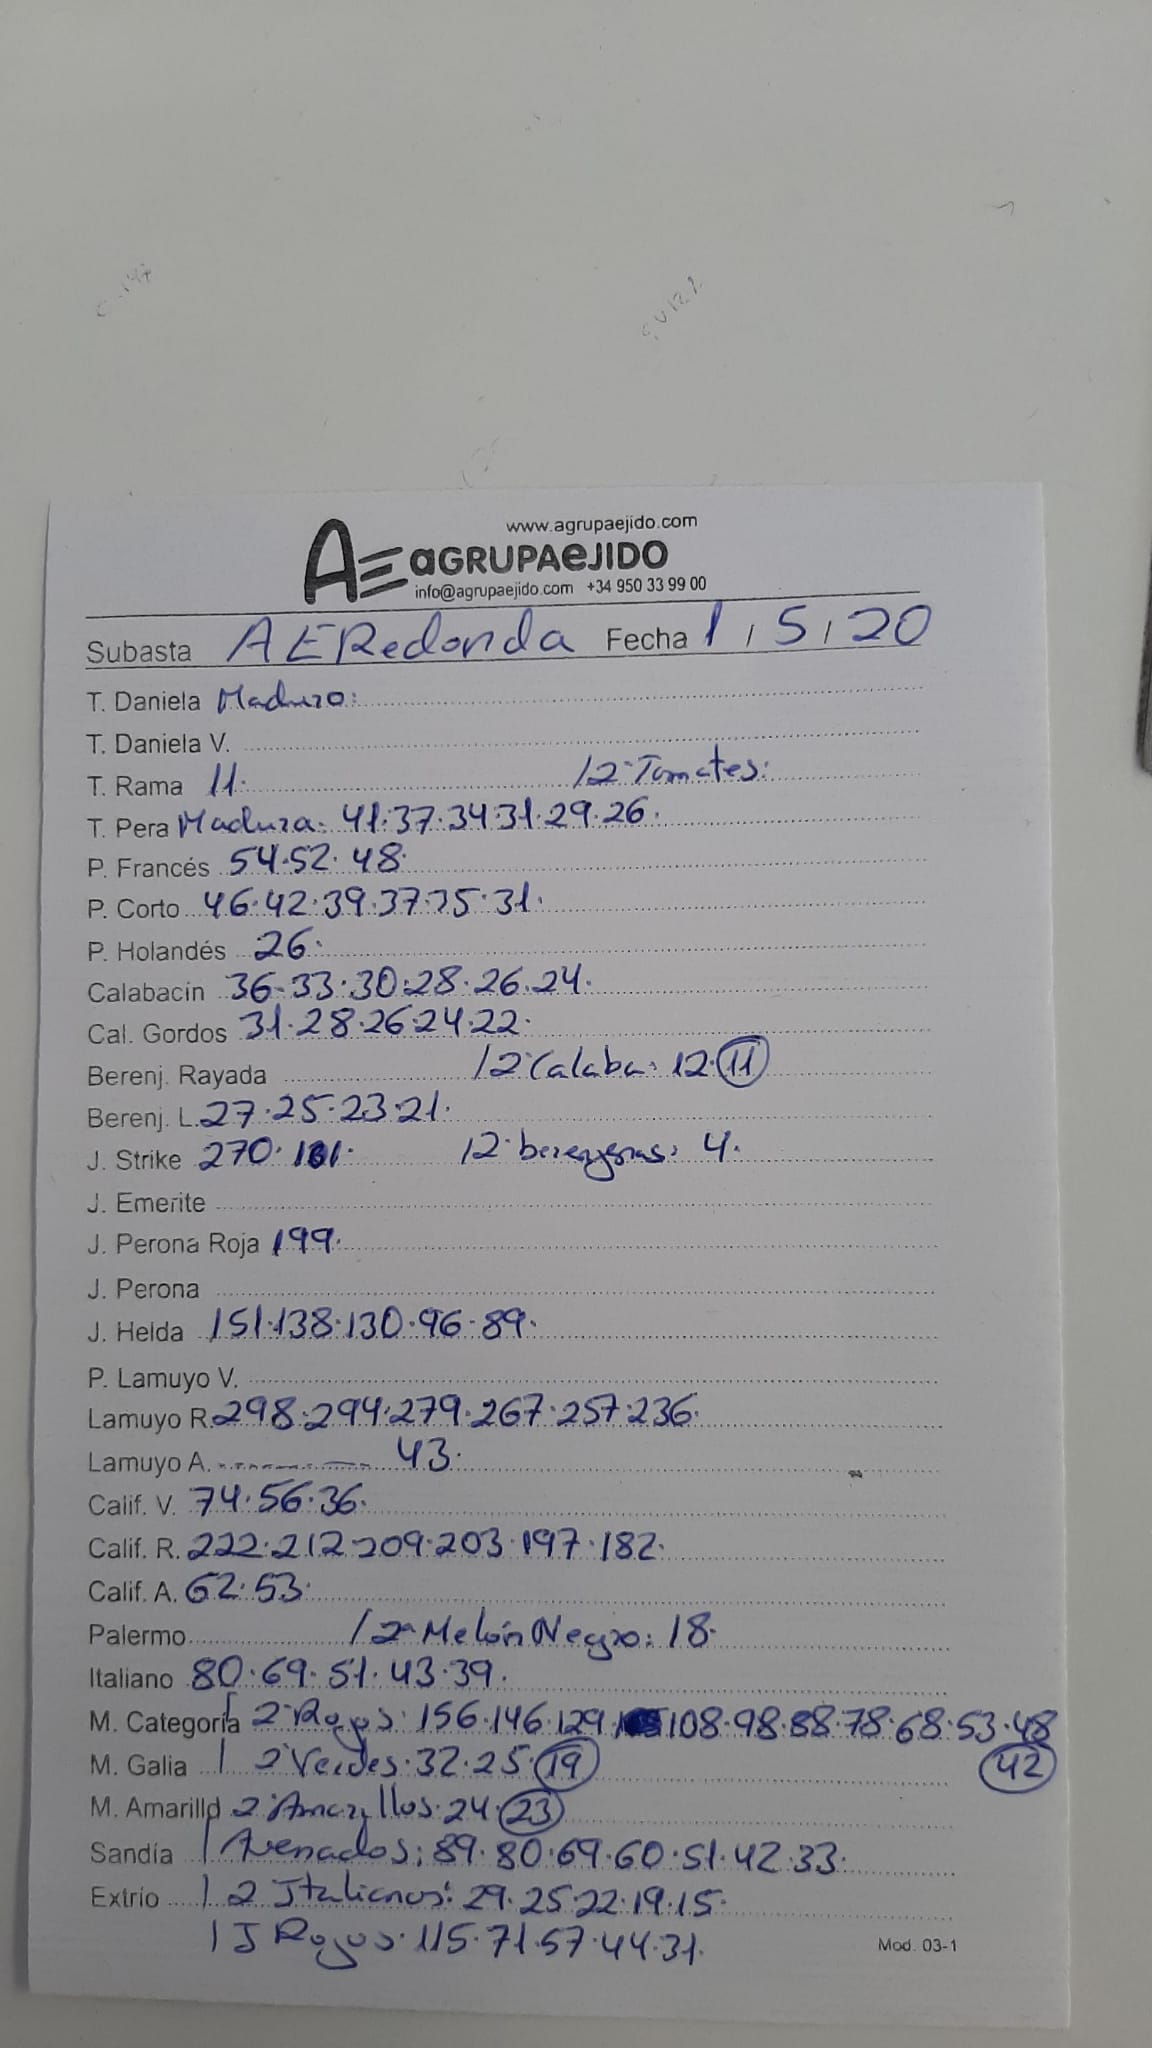 www.agrupaejido.com
AE aGRUPAeJIDO
info@agrupaejido.com +34 950 33 99 00
Subasta AERedonda Fecha 1 / 5 / 20
T. Daniela Maduro:
T. Daniela V.
T. Rama 11. / 2ª Tomates:
T. Pera Madura. 41.37.34.31.29.26.
P. Francés 54.52.48.
P. Corto 46.42.39.37.35.31.
P. Holandés 26.
Calabacín 36-33.30.28.26.24.
Cal. Gordos 31.28.26.24.22.
Berenj. Rayada / 2ª Calaba: 12.11
Berenj. L. 27.25.23.21.
J. Strike 270. / 2ª berengenas: 4.
J. Emerite
J. Perona Roja 199.
J. Perona
J. Helda 151.138.130.96.89.
P. Lamuyo V.
Lamuyo R. 298.294.279.267.257.236.
Lamuyo A. 43.
Calif. V. 74.56.36.
Calif. R. 222.212.209.203.197.182.
Calif. A. 62.53.
Palermo / 2ª Melón Negro: 18.
Italiano 80.69.51.43.39.
M. Categoría / 2ª Rojos: 156.146.129. 108.98.88.78.68.53.48
M. Galia / 2ª Verdes: 32.25.19 42
M. Amarillo / 2ª Amarillos: 24.23
Sandía / Avenados: 89.80.69.60.51.42.33.
Extrio / 2 Italianos: 29.25.22.19.15.
/ J Rojos: 115.71.57.44.31.
Mod. 03-1